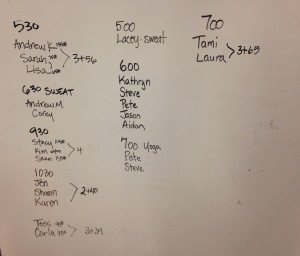 530
Andrew K.
Sarah
Lisa
3+56
630 SWEAT
Andrew M.
Corey
930
Stacy
Kim
Sean
4
1030
Jen
Shawn
Karen
2+40
Tess
Carla
3+39
500
Lacey-sweat
600
Kathryn
Steve
Pete
Jason
Aidan
700 Yoga
Pete
Steve
700
Tami
Laura
3+65